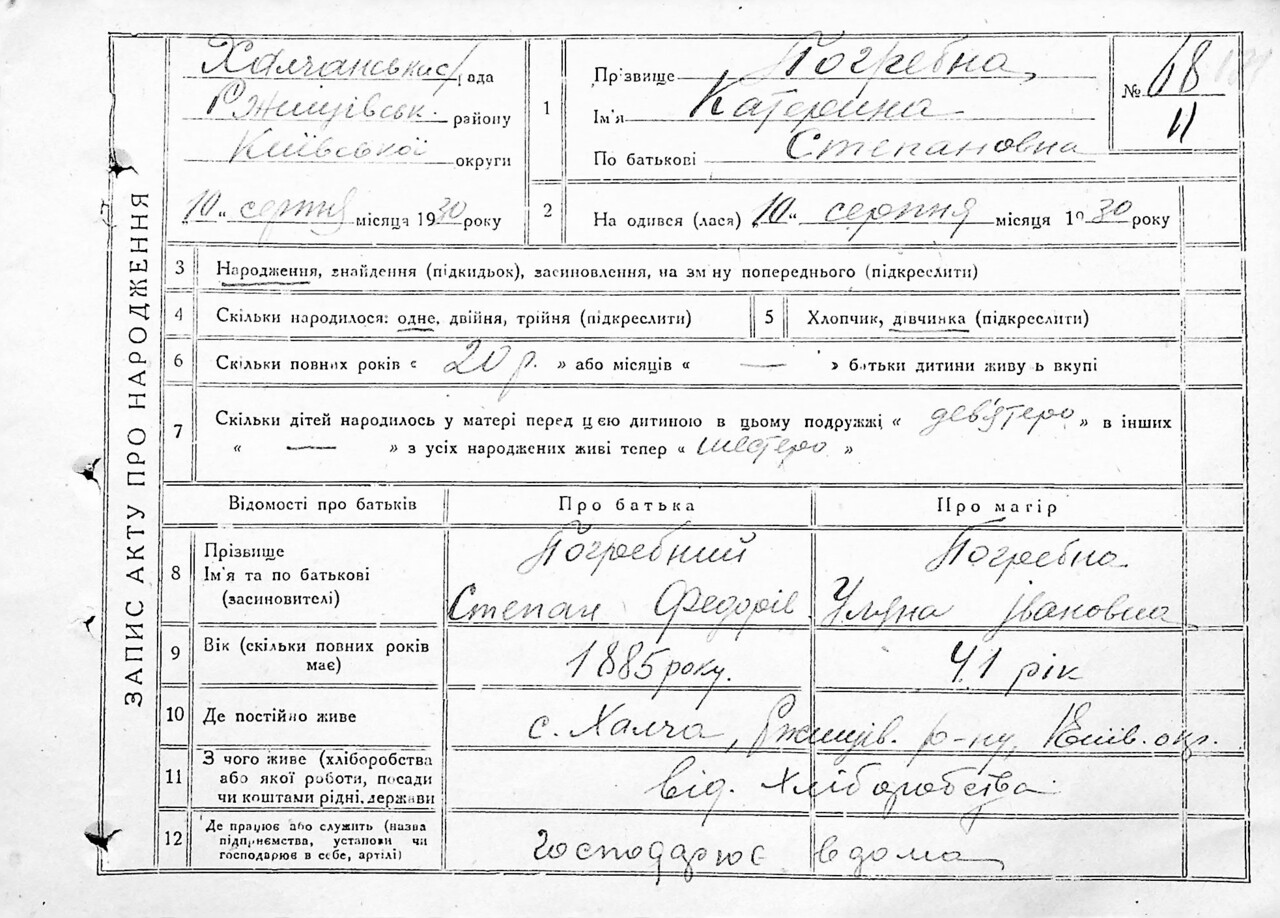 ЗАПИС АКТУ ПРО НАРОДЖЕННЯ
Халчанська рада
Ржищівськ. району
Київської округи
10 „ серпня місяця 1930 року
1
Прізвище Погребна
Ім'я Катерина
По батькові Степановна
№ 68
11
2 На одився (лася) 10 „ серпня місяця 1930 року
3 Народження, знайдення (підкидьок), засиновлення, на зм ну попереднього (підкреслити)
4 Скільки народилося: одне, двійня, трійня (підкреслити)
5 Хлопчик, дівчинка (підкреслити)
6 Скільки повних років « 20 р. » або місяців « — » батьки дитини живу ь вкупі
7 Скільки дітей народилось у матері перед цією дитиною в цьому подружжі « дев'ятеро » в інших
« — » з усіх народжених живі тепер « шестеро »
Відомості про батьків
Про батька
Про матір
8
Прізвище
Ім'я та по батькові
(засиновителі)
Погребний
Степан Федорів
Погребна
Уляна Івановна
9 Вік (скільки повних років
має)
1885 року.
41 рік
10 Де постійно живе
с. Халча, Ржищів. р-ну, Київ. окр.
11
З чого живе (хліборобства
або якої роботи, посади
чи коштами рідні, держави
від. Хліборобства
12
Де працює або служить (назва
підприємства, установи чи
господарює в себе, артілі)
Господарює вдома